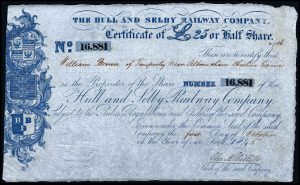 THE HULL AND SELBY RAILWAY COMPANY.
Certificate of £25 or Half Share.
No. 16.881
These are to certify that
William Brown of
is the Proprietor of the Share NUMBER 16.881 of the
Hull and Selby Railway Company
subject to the Rules, Regulations and Orders of the said Company.
Given under the Common Seal of the said
Company, the first Day of
in the Year of our Lord 184
Clerk of the said Company